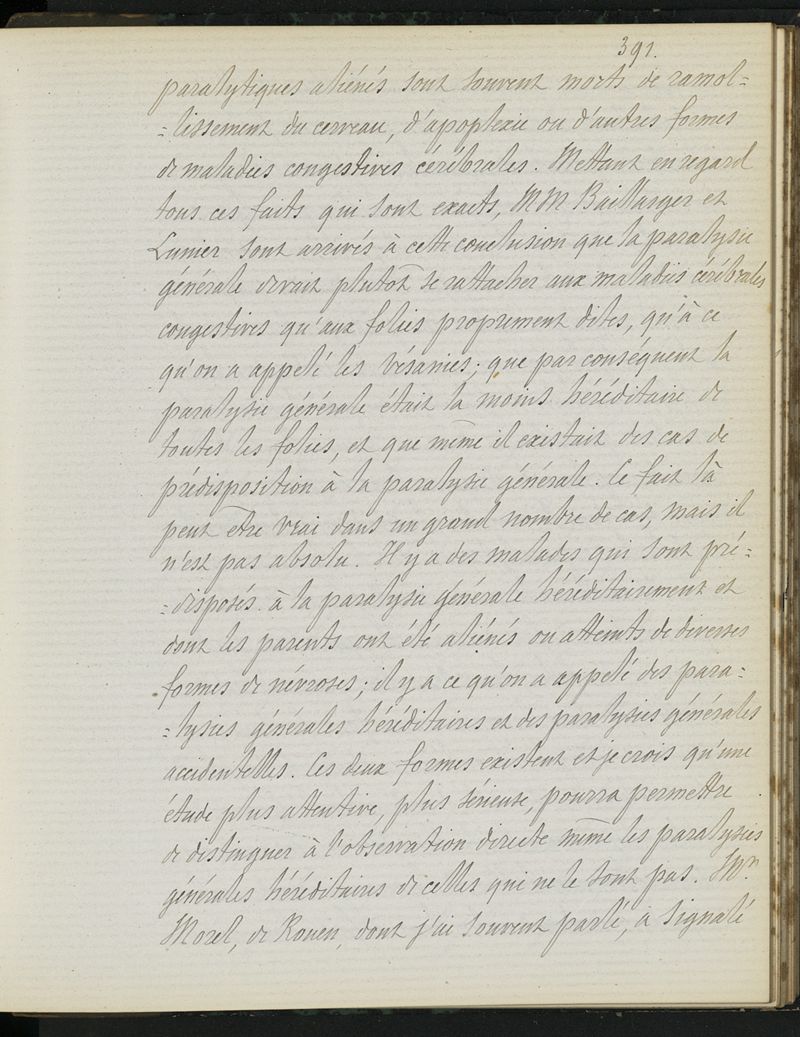 391.
paralytiques aliénés sont souvent morts de ramol=
=lissement du cerveau, d'apoplexie ou d'autres formes
de maladies congestives cérébrales. Mettant en regard
tous ces faits qui sont exacts, MM Baillarger et
Lunier sont arrivés à cette conclusion que la paralysie
générale devait plutôt se rattacher aux maladies cérébrales
congestives qu'aux folies proprement dites, qu'à ce
qu'on a appelé les vésanies; que par conséquent la
paralysie générale était la moins héréditaire de
toutes les folies, et que même il existait des cas de
prédisposition à la paralysie générale. Ce fait là
peut être vrai dans un grand nombre de cas, mais il
n'est pas absolu. Il y a des malades qui sont pré=
=disposés à la paralysie générale héréditairement et
dont les parents ont été aliénés ou atteints de diverses
formes de névroses; il y a ce qu'on a appelé des para=
=lysies générales héréditaires et des paralysies générales
accidentelles. Ces deux formes existent et je crois qu'une
étude plus attentive, plus sérieuse, pourra permettre
de distinguer à l'observation directe même les paralysies
générales héréditaires de celles qui ne le sont pas. Mr.
Morel, de Rouen, dont j'ai souvent parlé, a signalé